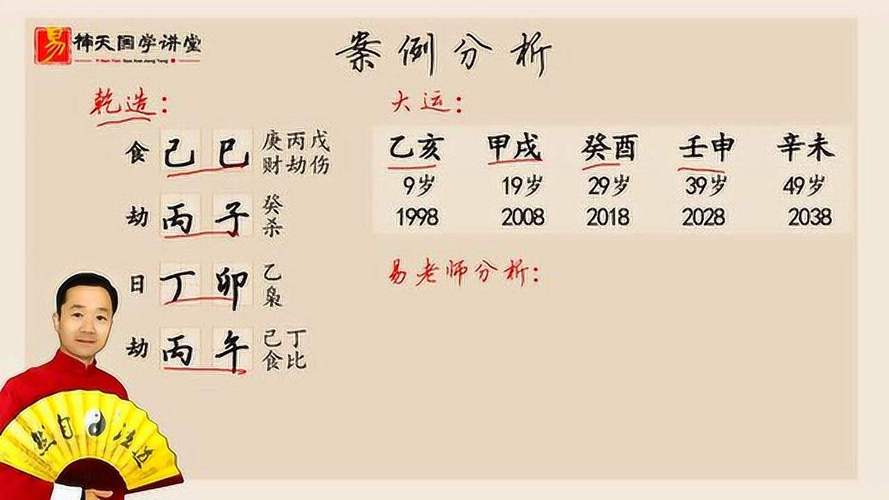 易 神天国学讲堂
案例分析
乾造:
食 己 巳 庚丙戊
财劫伤
劫 丙 子 癸
杀
日 丁 卯 乙
枭
劫 丙 午 己丁
食比
大运:
乙亥 甲戌 癸酉 壬申 辛未
9岁 19岁 29岁 39岁 49岁
1998 2008 2018 2028 2038
易老师分析:
然自法道